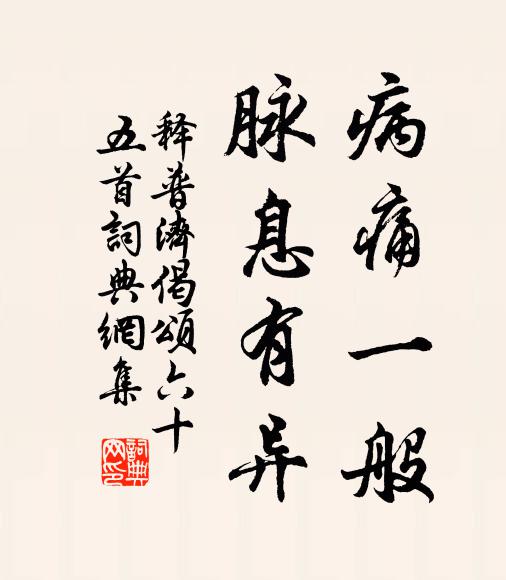 病痛一般
脉息有异
释普濟偈頌六十
五首詞典網集
詞典
网印